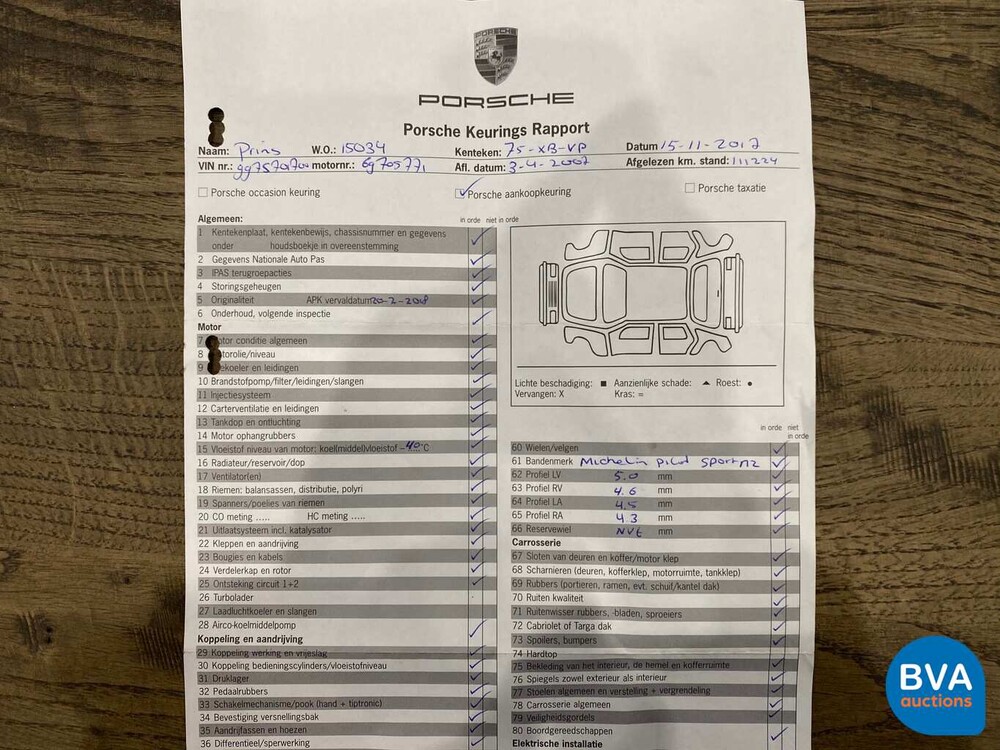 PORSCHE
PORSCHE
Porsche Keurings Rapport
Naam: Prins W.O.: 15034 Kenteken: 75-XB-VP Datum 15-11-2017
VIN nr.: motornr.: Afl. datum: 3-4-2007 Afgelezen km. stand: 111224
Porsche occasion keuring Porsche aankoopkeuring Porsche taxatie
Algemeen: in orde niet in orde
1 Kentekenplaat, kentekenbewijs, chassisnummer en gegevens
onder houdsboekje in overeenstemming
2 Gegevens Nationale Auto Pas
3 IPAS terugroepacties
4 Storingsgeheugen
5 Originaliteit APK vervaldatum 20-2-2018
6 Onderhoud, volgende inspectie
Motor
7 otor conditie algemeen
8 otorolie/niveau
9 ekoeler en leidingen
10 Brandstofpomp/filter/leidingen/slangen
11 Injectiesysteem
12 Carterventilatie en leidingen
13 Tankdop en ontluchting
14 Motor ophangrubbers
15 Vloeistof niveau van motor: koel(middel)vloeistof -40°C
16 Radiateur/reservoir/dop
17 Ventilator(en)
18 Riemen: balansassen, distributie, polyri
19 Spanners/poelies van riemen
20 CO meting ..... HC meting .....
21 Uitlaatsysteem incl. katalysator
22 Kleppen en aandrijving
23 Bougies en kabels
24 Verdelerkap en rotor
25 Ontsteking circuit 1+2
26 Turbolader
27 Laadluchtkoeler en slangen
28 Airco-koelmiddelpomp
Koppeling en aandrijving
29 Koppeling werking en vrijeslag
30 Koppeling bedieningscylinders/vloeistofniveau
31 Druklager
32 Pedaalrubbers
33 Schakelmechanisme/pook (hand + tiptronic)
34 Bevestiging versnellingsbak
35 Aandrijfassen en hoezen
36 Differentieel/sperwerking
Lichte beschadiging: ■ Aanzienlijke schade: ▲ Roest: ●
Vervangen: X Kras: =
in orde niet
in orde
60 Wielen/velgen
61 Bandenmerk Michelin pilot sport PS2
62 Profiel LV 5.0 mm
63 Profiel RV 4.6 mm
64 Profiel LA 4.5 mm
65 Profiel RA 4.3 mm
66 Reservewiel NVt mm
Carrosserie
67 Sloten van deuren en koffer/motor klep
68 Scharnieren (deuren, kofferklep, motorruimte, tankklep)
69 Rubbers (portieren, ramen, evt. schuif/kantel dak)
70 Ruiten kwaliteit
71 Ruitenwisser rubbers, -bladen, sproeiers
72 Cabriolet of Targa dak
73 Spoilers, bumpers
74 Hardtop
75 Bekleding van het interieur, de hemel en kofferruimte
76 Spiegels zowel exterieur als interieur
77 Stoelen algemeen en verstelling + vergrendeling
78 Carrosserie algemeen
79 Veiligheidsgordels
80 Boordgereedschappen
Elektrische installatie
BVA
auctions